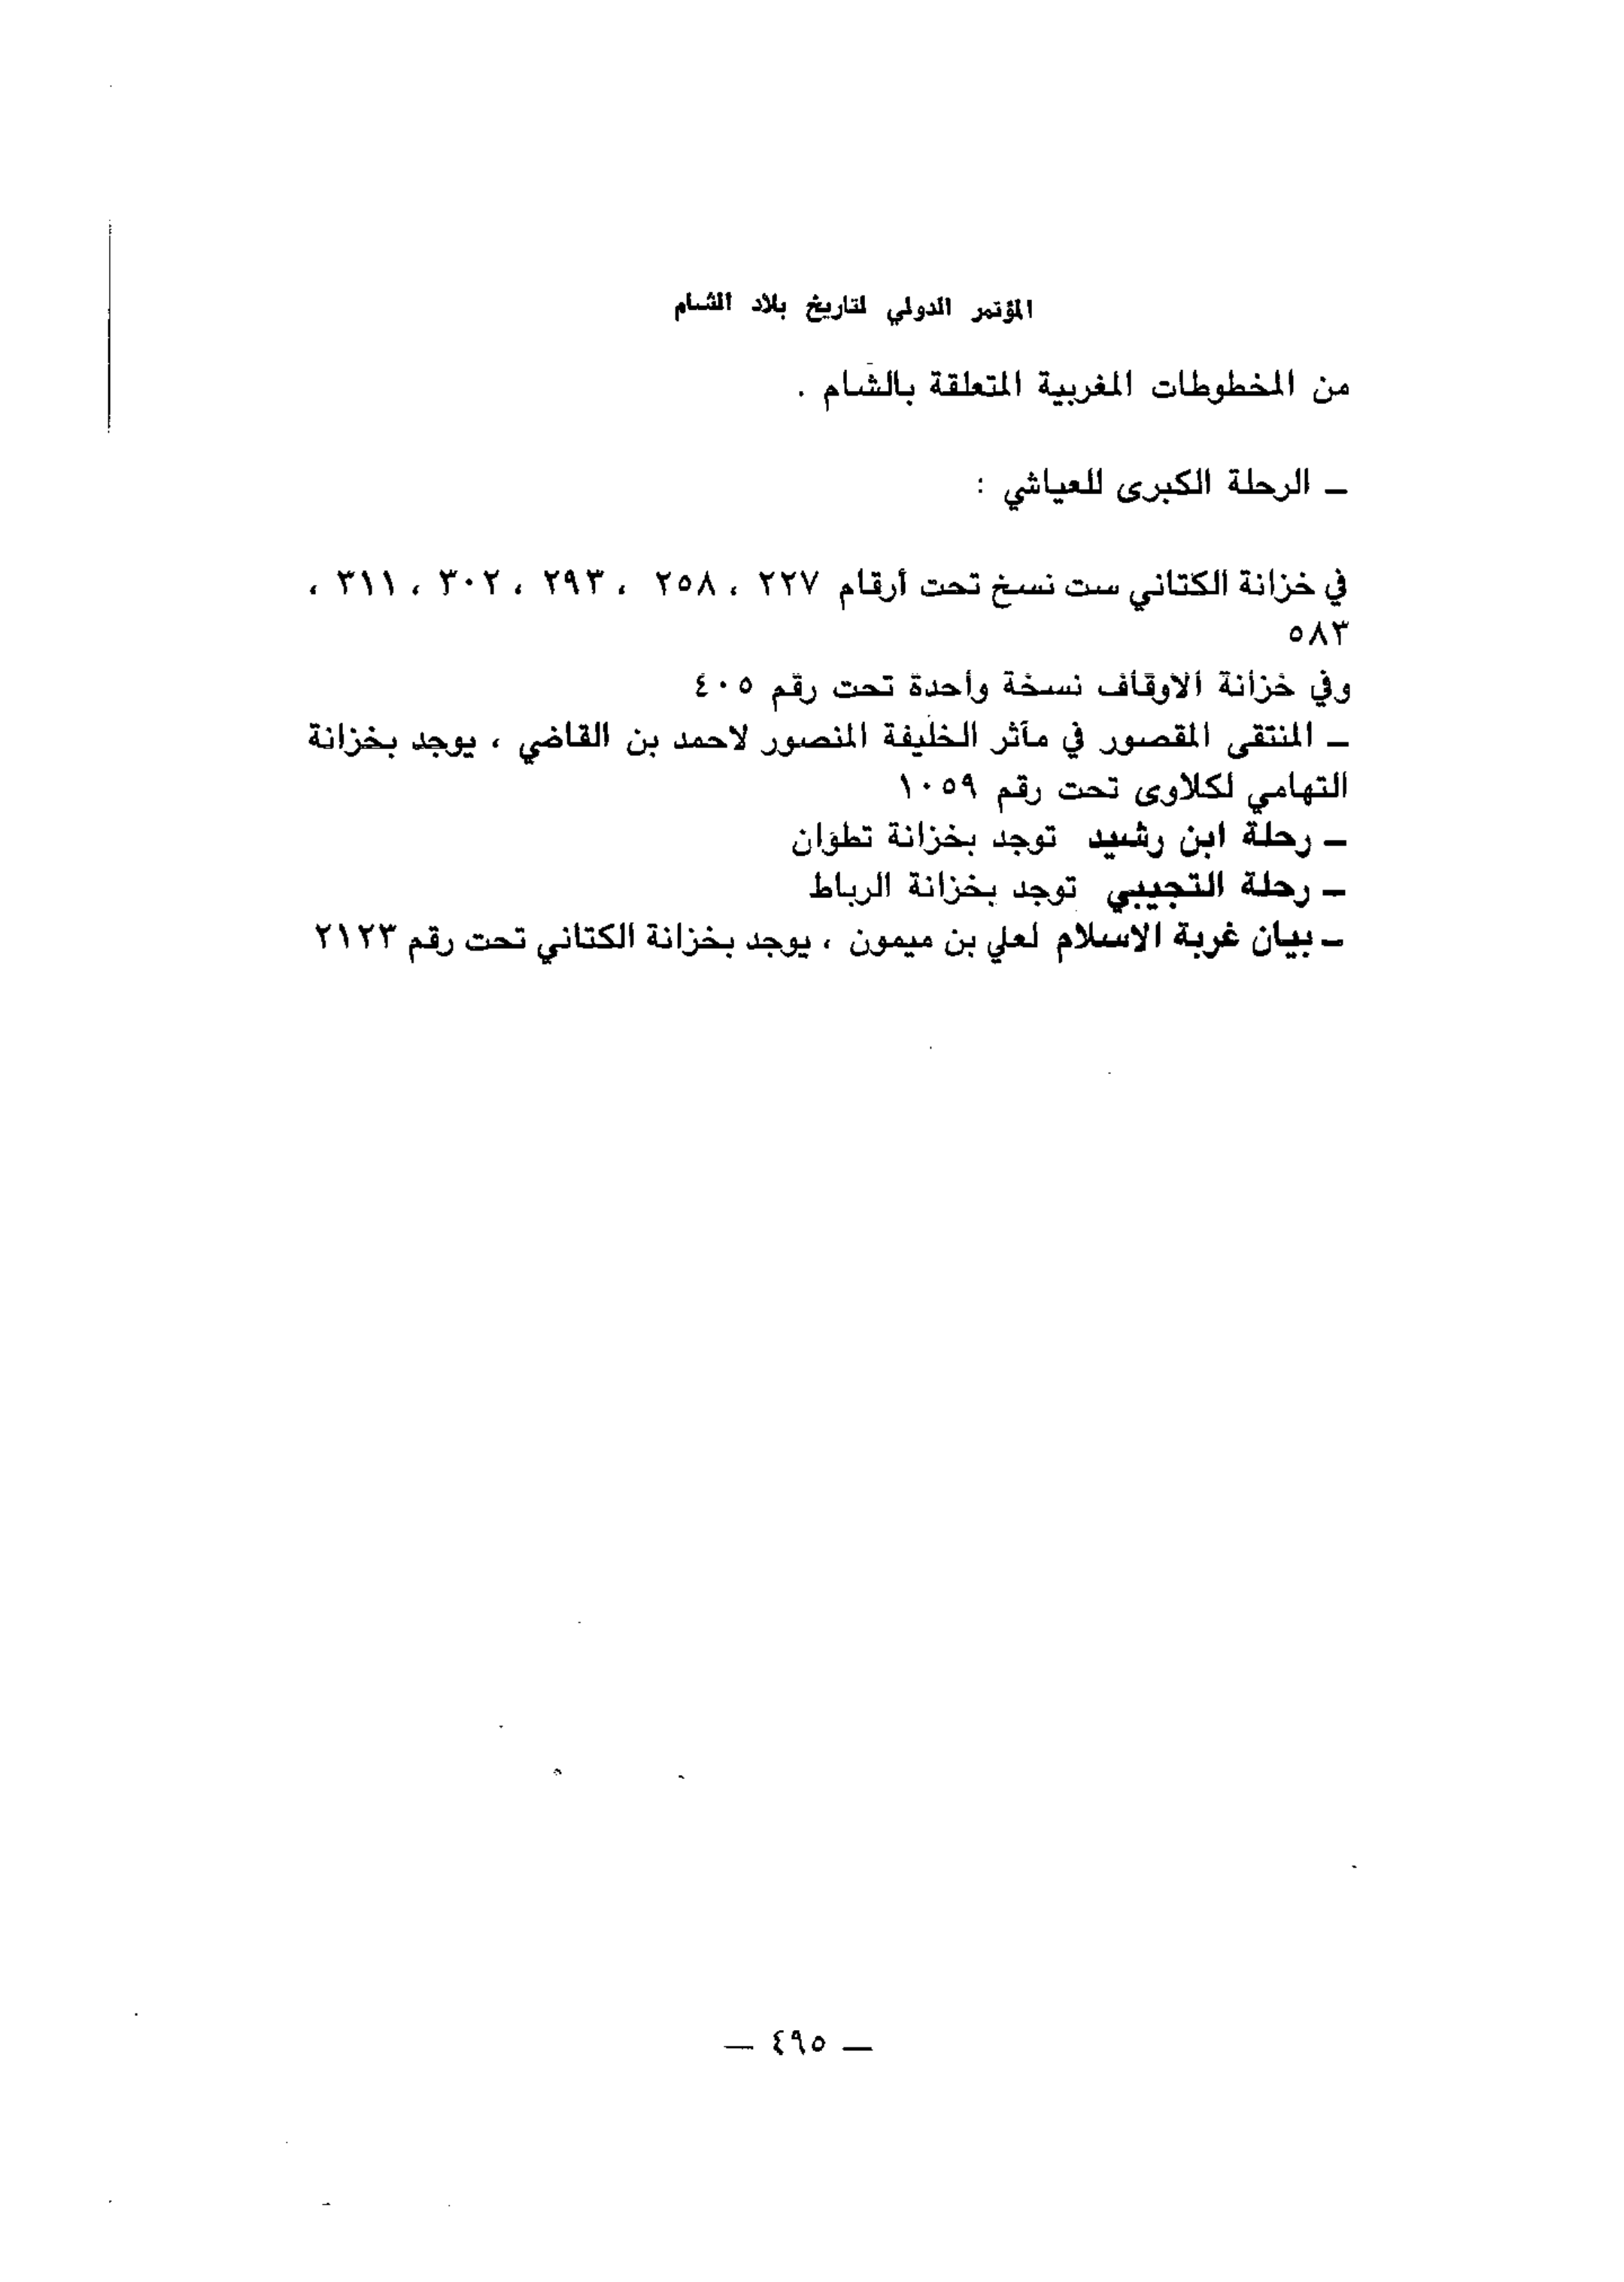 المؤتمر الدولي لتاريخ بلاد الشام
من المخطوطات المغربية المتعلقة بالشام .
– الرحلة الكبرى للعياشي :
في خزانة الكتاني ست نسخ تحت أرقام ٢٢٧ ، ٢٥٨ ، ٢٩٣ ، ٣٠٢ ، ٣١١ ،
٥٨٣
وفي خزانة الاوقاف نسخة واحدة تحت رقم ٤٠٥
– المنتقى المقصور في مآثر الخليفة المنصور لاحمد بن القاضي ، يوجد بخزانة
التهامي لكلاوى تحت رقم ١٠٥٩
– رحلة ابن رشيد توجد بخزانة تطوان
– رحلة التجيبي توجد بخزانة الرباط
– بيان غربة الاسلام لعلي بن ميمون ، يوجد بخزانة الكتاني تحت رقم ٢١٢٣
— ٤٩٥ —